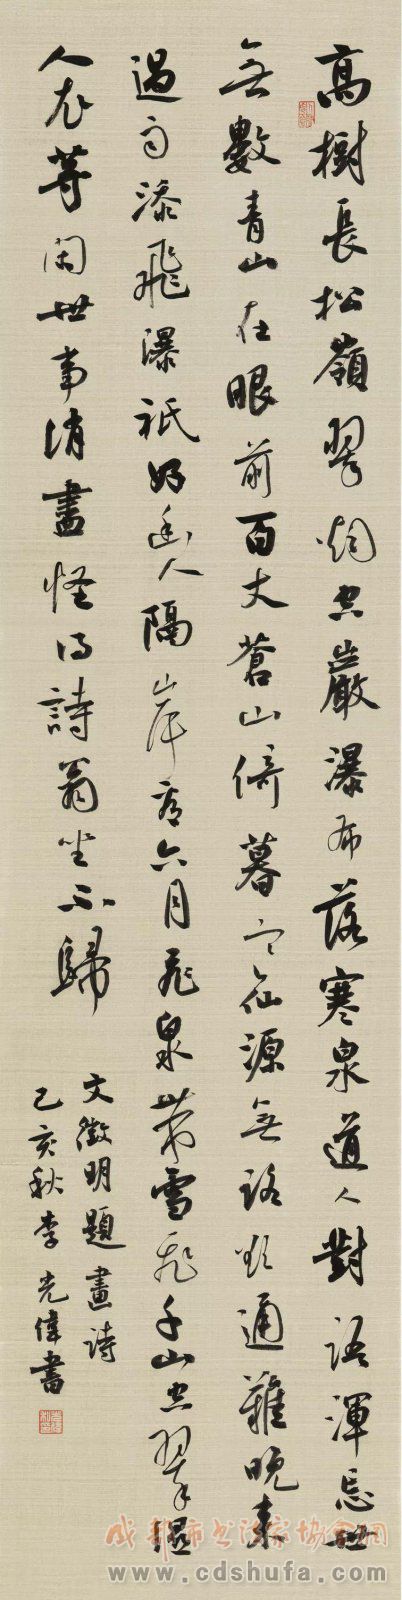 高樹長松嶺翠烟空巖瀑布落寒泉道人對語渾忘世
無數青山在眼前百丈蒼山倚暮寒仙源無路欲通難晚來
過雨添飛瀑祇好幽人隔岸看六月飛泉帶雪飛千山空翠濕
人衣等閑世事消盡怪得詩翁坐不歸
文徵明題畫詩
己亥秋李光偉書
成都市书法家协会网
www.cdshufa.com